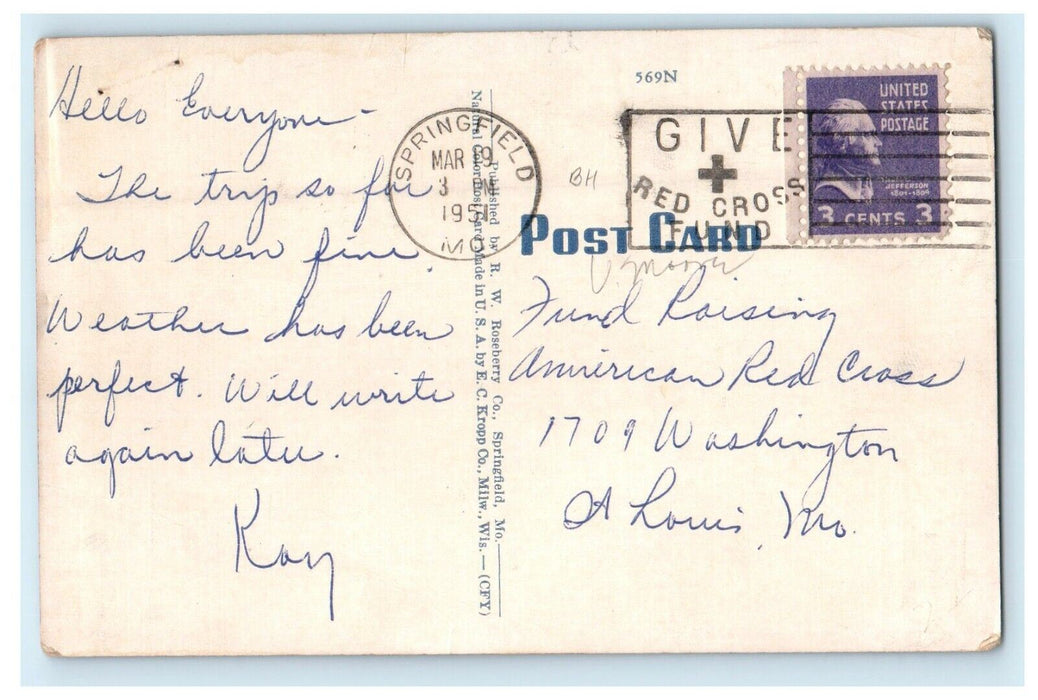 Hello Everyone -
The trip so far
has been fine.
Weather has been
perfect. Will write
again later.
Kay
Published by R. W. Roseberry Co., Springfield, Mo.
Natural Color Post Card Made in U. S. A. by E. C. Kropp Co., Milw., Wis. — (CFY)
SPRINGFIELD
MAR 9
3
1951
MO
569N
GIVE
RED CROSS
FUND
UNITED
STATES
POSTAGE
JEFFERSON
1801-1809
3 CENTS 3
BH
POST CARD
Fund Raising
American Red Cross
1709 Washington
St Louis, Mo.